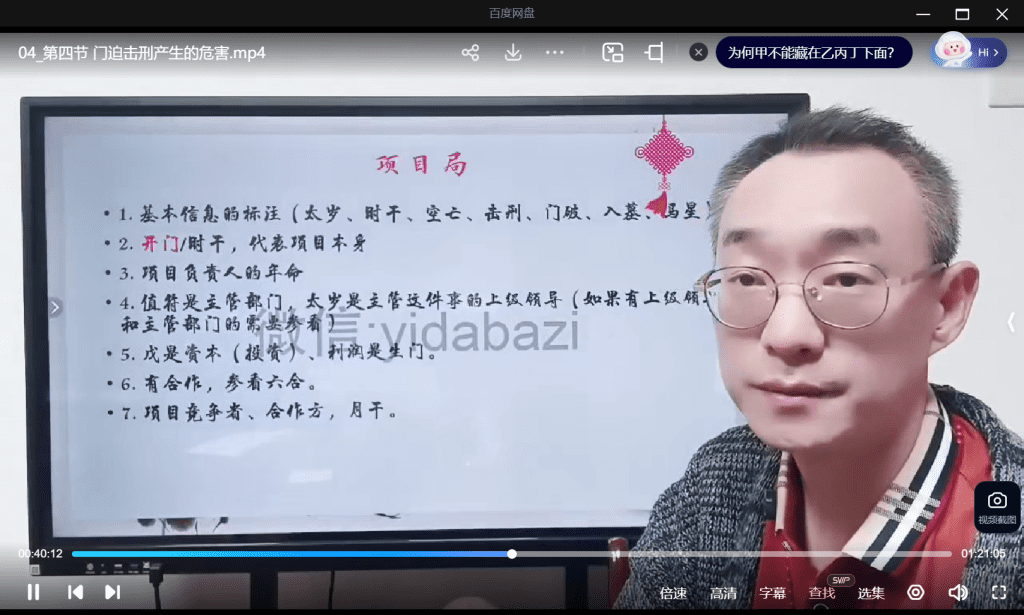 百度网盘
04_第四节 门迫击刑产生的危害.mp4
为何甲不能藏在乙丙丁下面?
Hi >
项目局
• 1. 基本信息的标注（太岁、时干、空亡、击刑、门破、入墓、马星）
• 2. 开门/时干，代表项目本身
• 3. 项目负责人的年命
• 4. 值符是主管部门，太岁是主管这件事的上级领导（如果有上级领
和主管部门的需要参看）
微信:yidabazi
• 5. 戊是资本（投资）、利润是生门。
• 6. 有合作，参看六合。
• 7. 项目竞争者、合作方，月干。
视频截图
00:40:12
01:21:05
倍速
高清
字幕
查找
SVIP
选集